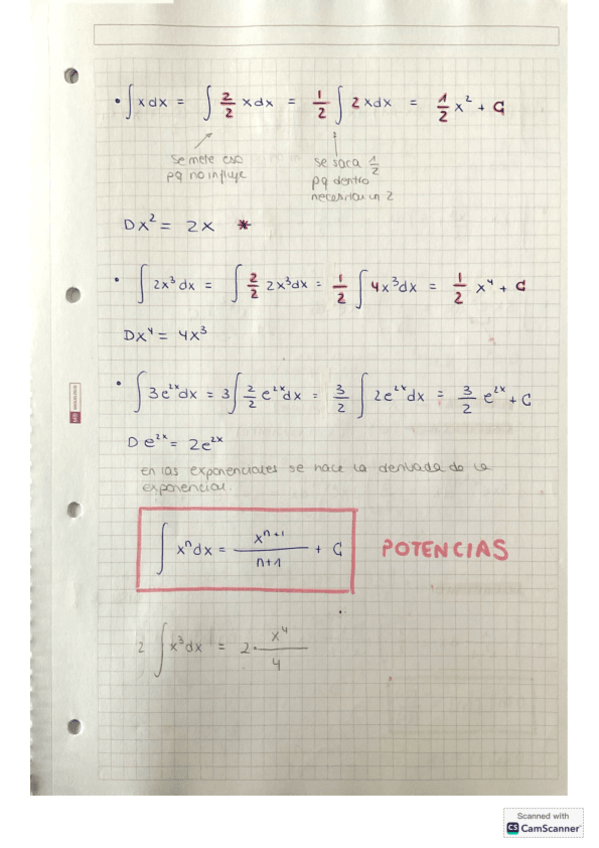 • ∫ x dx = ∫ 2/2 x dx = 1/2 ∫ 2x dx = 1/2 x² + C
se mete eso se saca 1/2
pq no influye pq dentro
necesitas un 2
Dx² = 2x *
• ∫ 2x³ dx = ∫ 2/2 2x³ dx = 1/2 ∫ 4x³ dx = 1/2 x⁴ + C
Dx⁴ = 4x³
• ∫ 3e²ˣ dx = 3 ∫ 2/2 e²ˣ dx = 3/2 ∫ 2e²ˣ dx = 3/2 e²ˣ + C
D e²ˣ = 2e²ˣ
en las exponenciales se hace la derivada de la
exponencial.
∫ xⁿ dx = xⁿ⁺¹/n+1 + C POTENCIAS
2 ∫ x³ dx = 2· x⁴/4
Scanned with
CS CamScanner